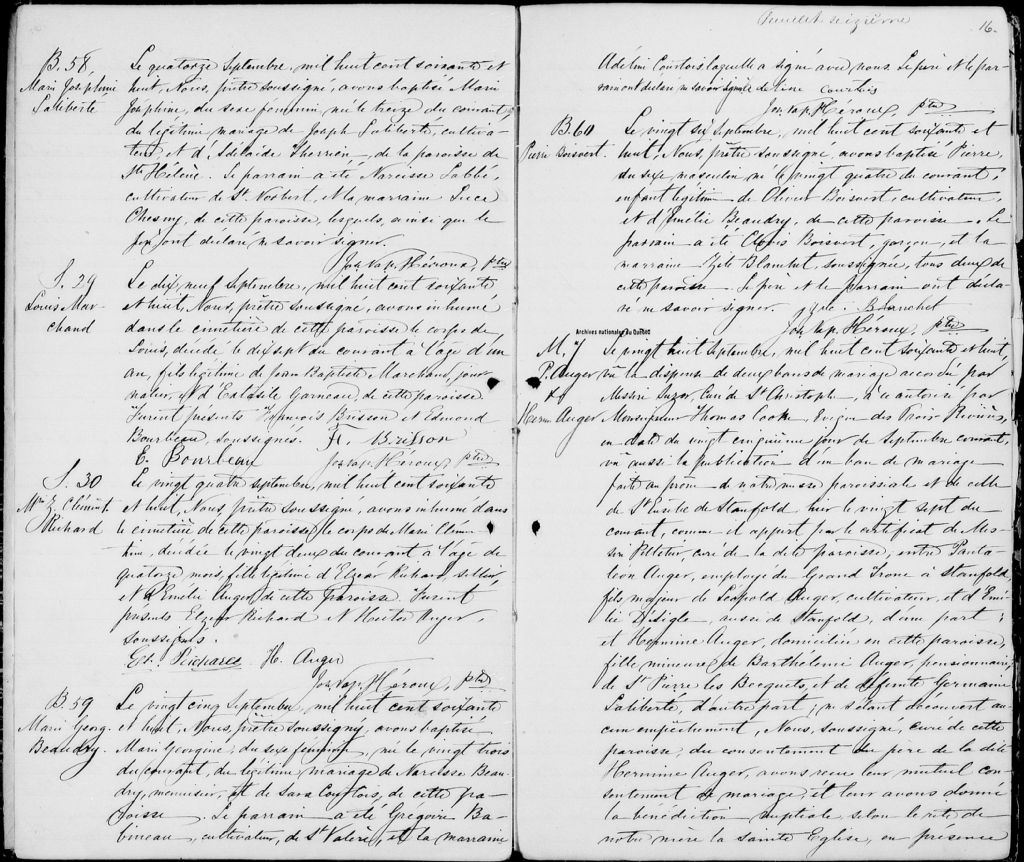 B. 58
Marie Joséphine
Laliberté
Le quatorze Septembre, mil huit cent soixante et
huit, Nous, prêtre soussigné, avons baptisé Marie
Joséphine, du sexe féminin, née le treize du courant
du légitime mariage de Joseph Laliberté, cultiva-
teur, et d'Adélaïde Therrien, de la paroisse de
Ste Hélène. Le parrain a été Narcisse Labbé,
cultivateur de St. Norbert, et la marraine Luce
de cette paroisse, lesquels, ainsi que le
père ont déclaré ne savoir signer.
Jos. Nap. Héroux, ptre
S. 29
Louis Mar-
chand
Le dix neuf Septembre, mil huit cent soixante
et huit, Nous, prêtre soussigné, avons inhumé
dans le cimetière de cette paroisse le corps de
Louis, décédé le dix sept du courant à l'âge d'un
an, fils légitime de Jean Baptiste Marchand, jour-
nalier, et d'Exxx Garneau, de cette paroisse
Furent présents François Brisson et Edmond
Bourbeau, soussignés. F. Brisson
E. Bourbeau Jos. Nap. Héroux ptre
S. 30
Mie Z. Clémist.
Richard
Le vingt quatre septembre, mil huit cent soixante
et huit, Nous, prêtre soussigné, avons inhumé dans
le cimetière de cette paroisse le corps de Marie
décédée le vingt deux du courant à l'âge de
quatorze mois, fille légitime d'Elzéar Richard, sellier,
et d'Emélie Auger, de cette paroisse. Furent
présents Elzéar Richard et Hector Auger,
soussignés.
El. Richard H. Auger
Jos. Nap. Héroux, ptre
B. 59
Marie Georg.
Beaudry
Le vingt cinq Septembre, mil huit cent soixante
et huit, Nous, prêtre soussigné, avons baptisé
Marie Georgine, du sexe féminin, née le vingt trois
du courant, du légitime mariage de Narcisse Beau-
dry, menuisier, et de Sara Courtois, de cette pa-
roisse. Le parrain a été Grégoire Ba-
bineau, cultivateur, de St Valère, et la marraine
Feuillet seizième
16.
Adeline Courtois laquelle a signé avec nous. Le père et le par-
rain ont déclaré ne savoir signer. Adeline Courtois
Jos. Nap. Héroux, ptre
B. 60
Pierre Boisvert.
Le vingt six Septembre, mil huit cent soixante et
huit, Nous, prêtre soussigné, avons baptisé Pierre,
du sexe masculin né le vingt quatre du courant,
enfant légitime de Olivier Boisvert, cultivateur,
et d'Emélie Beaudry, de cette paroisse. Le
parrain a été Clovis Boisvert, garçon, et la
marraine Zoé Blanchet, soussignée, tous deux de
cette paroisse. Le père et le parrain ont décla-
ré ne savoir signer. Blanchet
Jos. Nap. Héroux, ptre
Archives nationales du Québec
M. 7
P. Auger
&
Herm. Auger
Le vingt huit Septembre, mil huit cent soixante et huit
vu la dispense de deux bans de mariage accordée par
Messire Suzor, Curé de St Christophe, à ce autorisé par
Monseigneur Thomas Cook, Evêque des Trois Rivières,
en date du vingt cinquième jour de Septembre courant,
vu aussi la publication d'un ban de mariage
faite au prône de notre messe paroissiale et de celle
de St Eusèbe de Stanfold, hier le vingt sept du
courant, comme il appert par le certificat de Mes-
sire Pelletier, curé de la dite paroisse, entre Panta-
léon Auger, employé du Grand Tronc à Stanfold,
fils majeur de Léopold Auger, cultivateur, et d'Emé-
lie Déligle, aussi de Stanfold, d'une part;
et Hermine Auger, domiciliée en cette paroisse,
fille mineure de Barthélemi Auger, pensionnaire,
de St Pierre les Becquets, et de défunte Germaine
Laliberté, d'autre part; ne s'étant découvert au-
cun empêchement, Nous, soussigné, curé de cette
paroisse, du consentement du père de la dite
Hermine Auger, avons reçu leur mutuel con-
sentement de mariage et leur avons donné
la bénédiction nuptiale selon le rite de
notre mère la Sainte Eglise, en présence